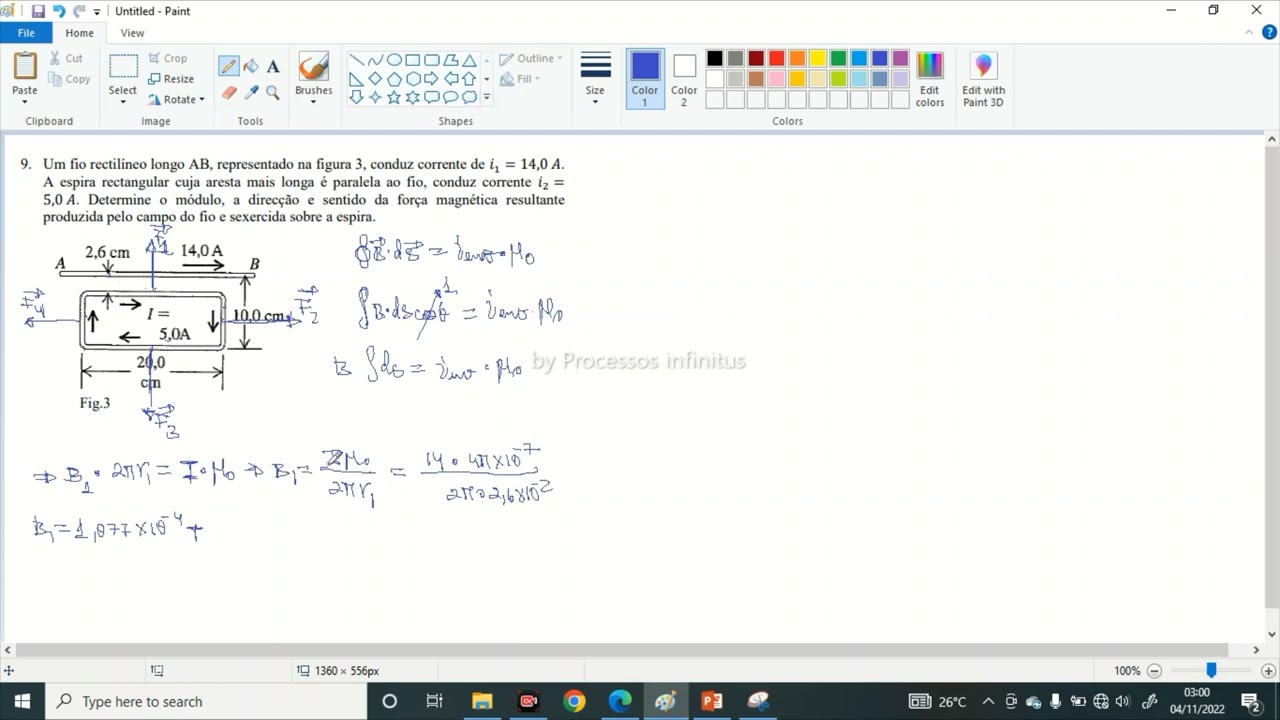 Untitled - Paint
File Home View
Paste Cut Copy Select Crop Resize Rotate Brushes Outline Fill Size Color 1 Color 2 Edit colors Edit with Paint 3D
Clipboard Image Tools Shapes Colors
9. Um fio rectilíneo longo AB, representado na figura 3, conduz corrente de i₁ = 14,0 A.
A espira rectangular cuja aresta mais longa é paralela ao fio, conduz corrente i₂ =
5,0 A. Determine o módulo, a direcção e sentido da força magnética resultante
produzida pelo campo do fio e sexercida sobre a espira.
2,6 cm 14,0 A
A B
F₄ I = 5,0A 10,0 cm F₂
20,0 cm
Fig.3
F₃
∮B⃗·dS⃗ = i_env·μ₀
∫B·dS cosθ 1 = i_env·μ₀
B ∫dS = i_env·μ₀
by Processos infinitus
⇒ B₁·2πr₁ = I·μ₀ ⇒ B₁ = Iμ₀/2πr₁ = 14·4π×10⁻⁷/2π·2,6×10⁻²
B₁ = 1,077×10⁻⁴ T
1360 × 556px 100%
Type here to search 26°C 03:00
04/11/2022 2